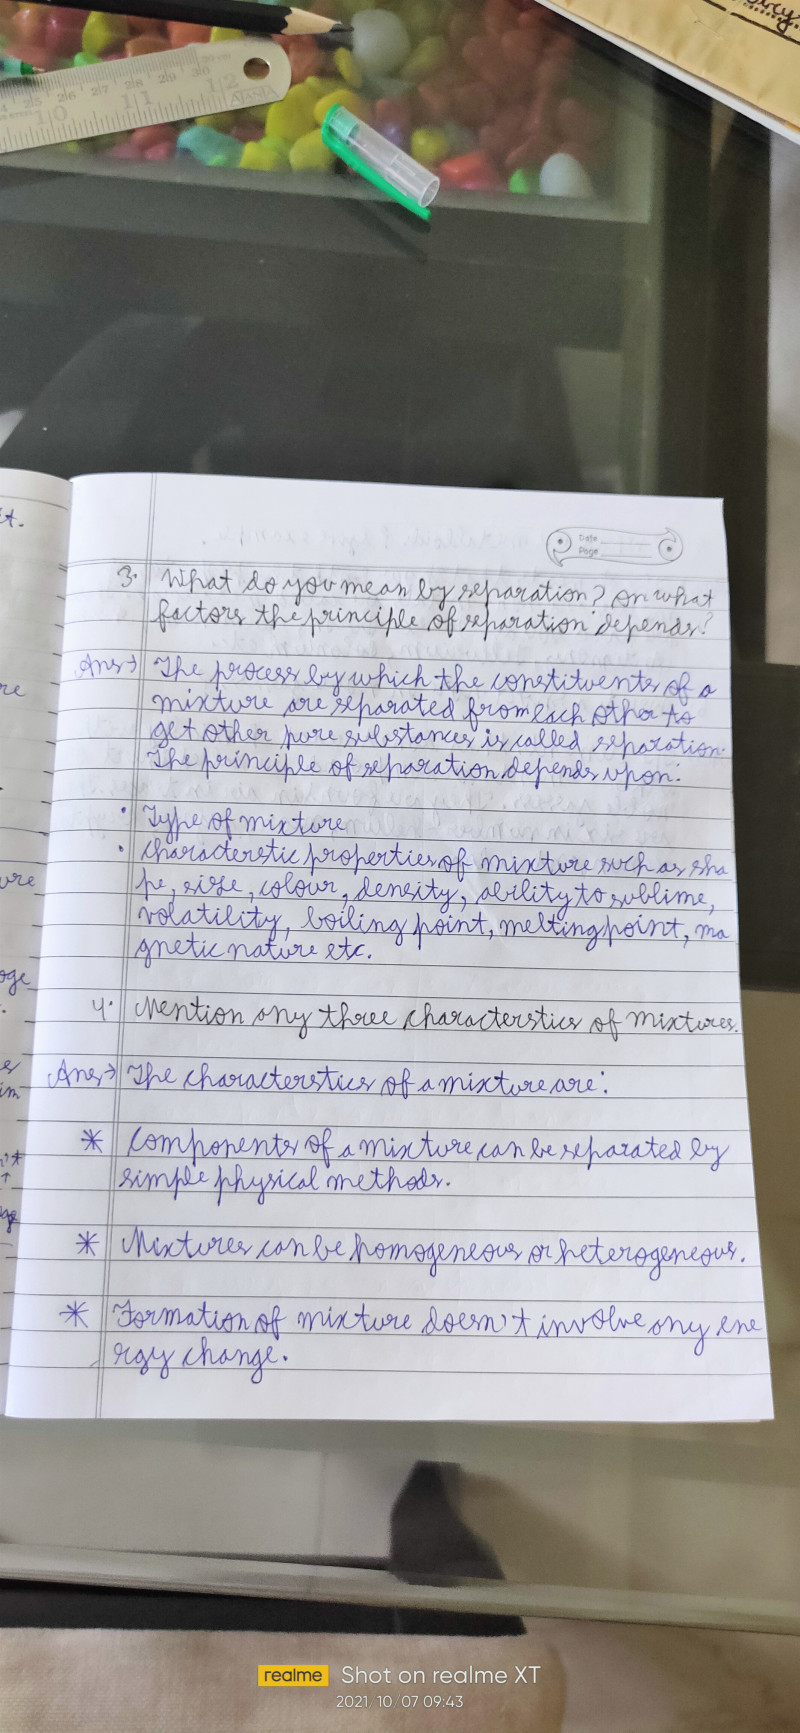 24 25 26 27 28 29 30
10 11 12
AJANTA
it.
Date
Page
3. What do you mean by separation? On what
factors the principle of separation depends?
Ans→ The process by which the constituents of a
mixture are separated from each other to
get other pure substances is called separation.
The principle of separation depends upon:
• Type of mixture
• characterestic properties of mixture such as sha
pe, size, colour, density, ability to sublime,
volatility, boiling point, melting point, ma
gnetic nature etc.
4. Mention any three characterstics of mixtures.
Ans→ The characterstics of a mixture are:
* Components of a mixture can be separated by
simple physical methods.
* Mixtures can be homogeneous or heterogeneous.
* Formation of mixture doesn't involve any ene
rgy change.
realme Shot on realme XT
2021/10/07 09:43